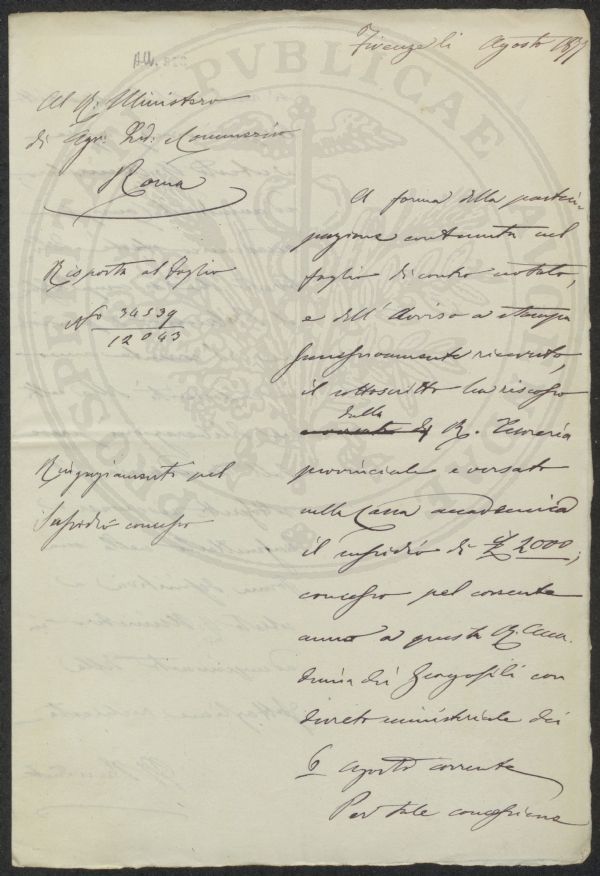 Firenze li Agosto 1877
All.
Al R. Ministero
di Agr. Ind. e Commercio
Roma
Risposta al foglio
No 34539
12043
Ringraziamenti pel
Sussidio concesso
A forma della parteci-
pazione contenuta nel
foglio di contro notato,
e dell'Avviso a stampa
successivamente ricevuto,
il sottoscritto ha riscosso
dalla
R. Tesoreria
provinciale e versato
nella Cassa accademica
il sussidio di £ 2000,
concesso pel corrente
anno a questa R. Acca-
demia dei Georgofili con
decreto ministeriale dei
6 agosto corrente
Per tale concessione
PROSPERITATI PUBLICAE AUGENDAE